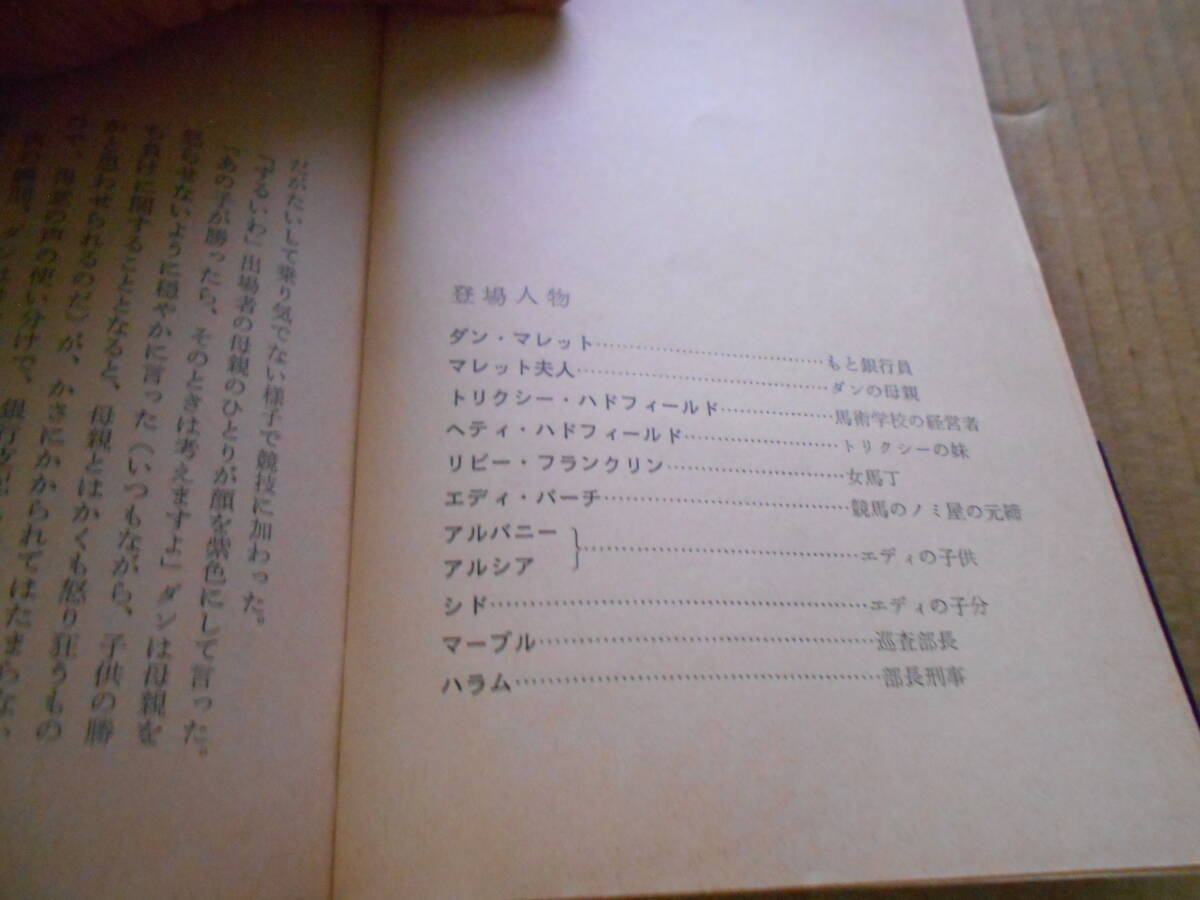 登場人物
ダン・マレット……………………………もと銀行員
マレット夫人………………………………ダンの母親
トリクシー・ハドフィールド……………馬術学校の経営者
ヘティ・ハドフィールド…………………トリクシーの妹
リビー・フランクリン……………………女馬丁
エディ・バーチ……………………………競馬のノミ屋の元締
アルバニー
アルシア
}…………………………………エディの子供
シド…………………………………………エディの子分
マーブル……………………………………巡査部長
ハラム………………………………………部長刑事
だがたいして乗り気でない様子で競技に加わった。
「ずるいわ」出場者の母親のひとりが顔を紫色にして言った。
「あの子が勝ったら、そのときは考えますよ」ダンは母親を
怒らせないように穏やかに言った（いつもながら、子供の勝
ち負けに関することとなると、母親とはかくも怒り狂うもの
かと思わせられるのだ）が、かさにかかられてはたまらない
の声の使い分けで、銀行
瞬間、ダンは